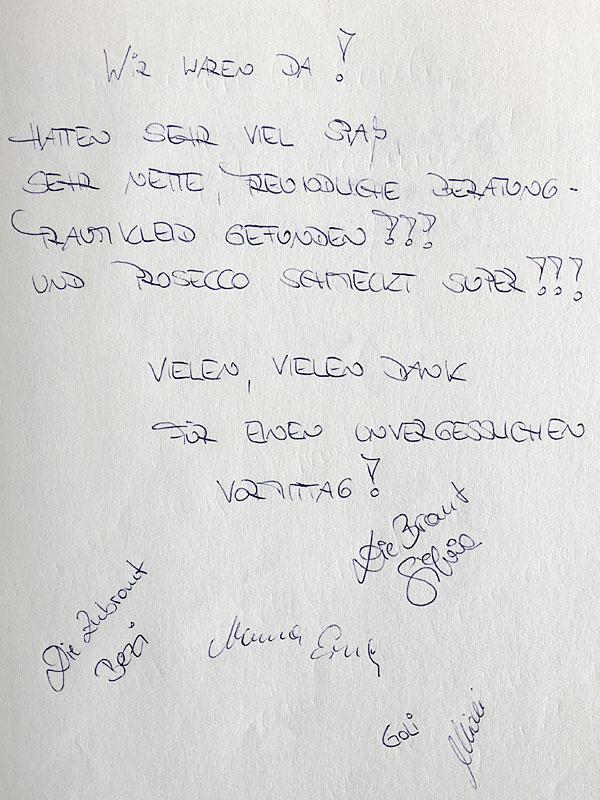 Wir waren da!
HATTEN SEHR VIEL SPAß,
SEHR NETTE, FREUNDLICHE BERATUNG-
TRAUMKLEID GEFUNDEN!!!
UND PROSECCO SCHMECKT SUPER!!!
VIELEN, VIELEN DANK
FÜR EINEN UNVERGESSLICHEN
VORMITTAG!
Die Braut
Silvia
Die Zubraut
Mama
Goli